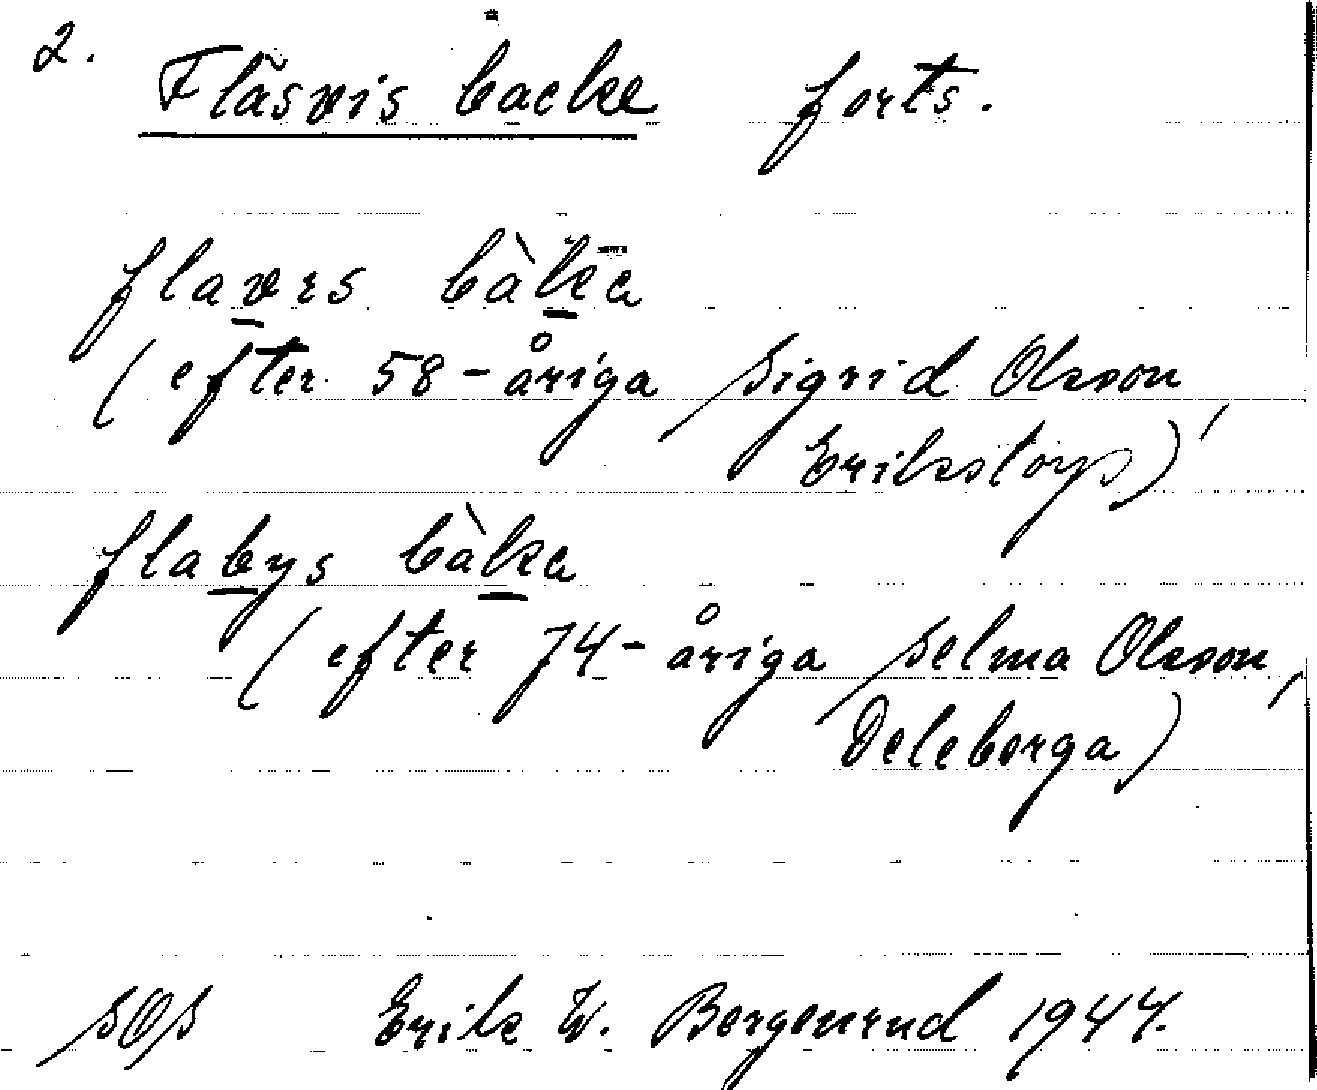 2.
Flasvis backe forts.
flavrs bàka
(efter 58-åriga Sigrid Olsson,
Erikstorp)
flabys bàka
(efter 74-åriga Selma Olsson,
Deleborga)
SOS Erik W. Bergenrud 1944.